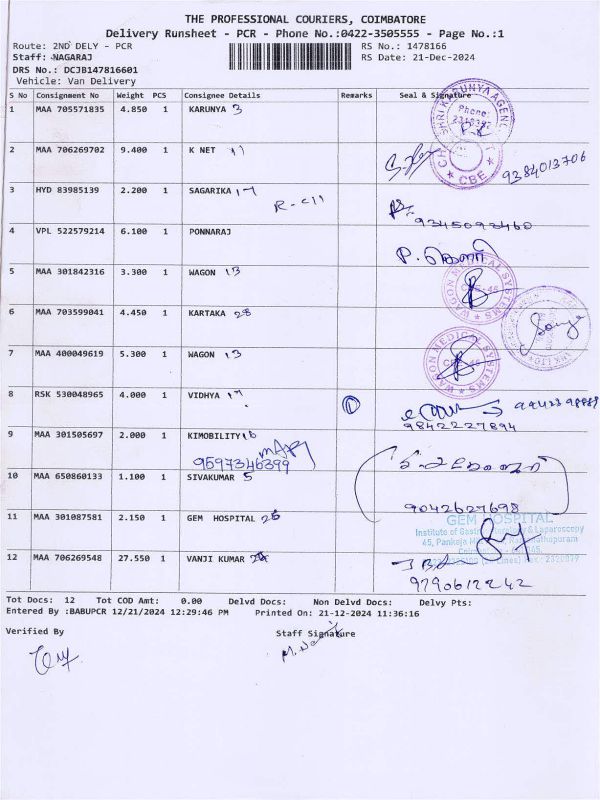 THE PROFESSIONAL COURIERS, COIMBATORE
Delivery Runsheet - PCR - Phone No.:0422-3505555 - Page No.:1
Route: 2ND DELY - PCR RS No.: 1478166
Staff: NAGARAJ RS Date: 21-Dec-2024
DRS No.: DCJB147816601
Vehicle: Van Delivery
S No Consignment No Weight PCS Consignee Details Remarks Seal & Signature
1 MAA 705571835 4.850 1 KARUNYA 3
2 MAA 706269702 9.400 1 K NET 17 9384013706
3 HYD 83985139 2.200 1 SAGARIKA 17
R-C11 9345093460
4 VPL 522579214 6.100 1 PONNARAJ
5 MAA 301842316 3.300 1 WAGON 13 WAGON MEDICAL SYSTEMS
6 MAA 703599041 4.450 1 KARTAKA 28
7 MAA 400049619 5.300 1 WAGON 13 WAGON MEDICAL SYSTEMS
8 RSK 530048965 4.000 1 VIDHYA 17
9842227894
9 MAA 301505697 2.000 1 KIMOBILITY 16
9597346399
10 MAA 650860133 1.100 1 SIVAKUMAR 5
9042627698
11 MAA 301087581 2.150 1 GEM HOSPITAL 26 GEM HOSPITAL
12 MAA 706269548 27.550 1 VANJI KUMAR
9790612242
Tot Docs: 12 Tot COD Amt: 0.00 Delvd Docs: Non Delvd Docs: Delvy Pts:
Entered By :BABUPCR 12/21/2024 12:29:46 PM Printed On: 21-12-2024 11:36:16
Verified By Staff Signature